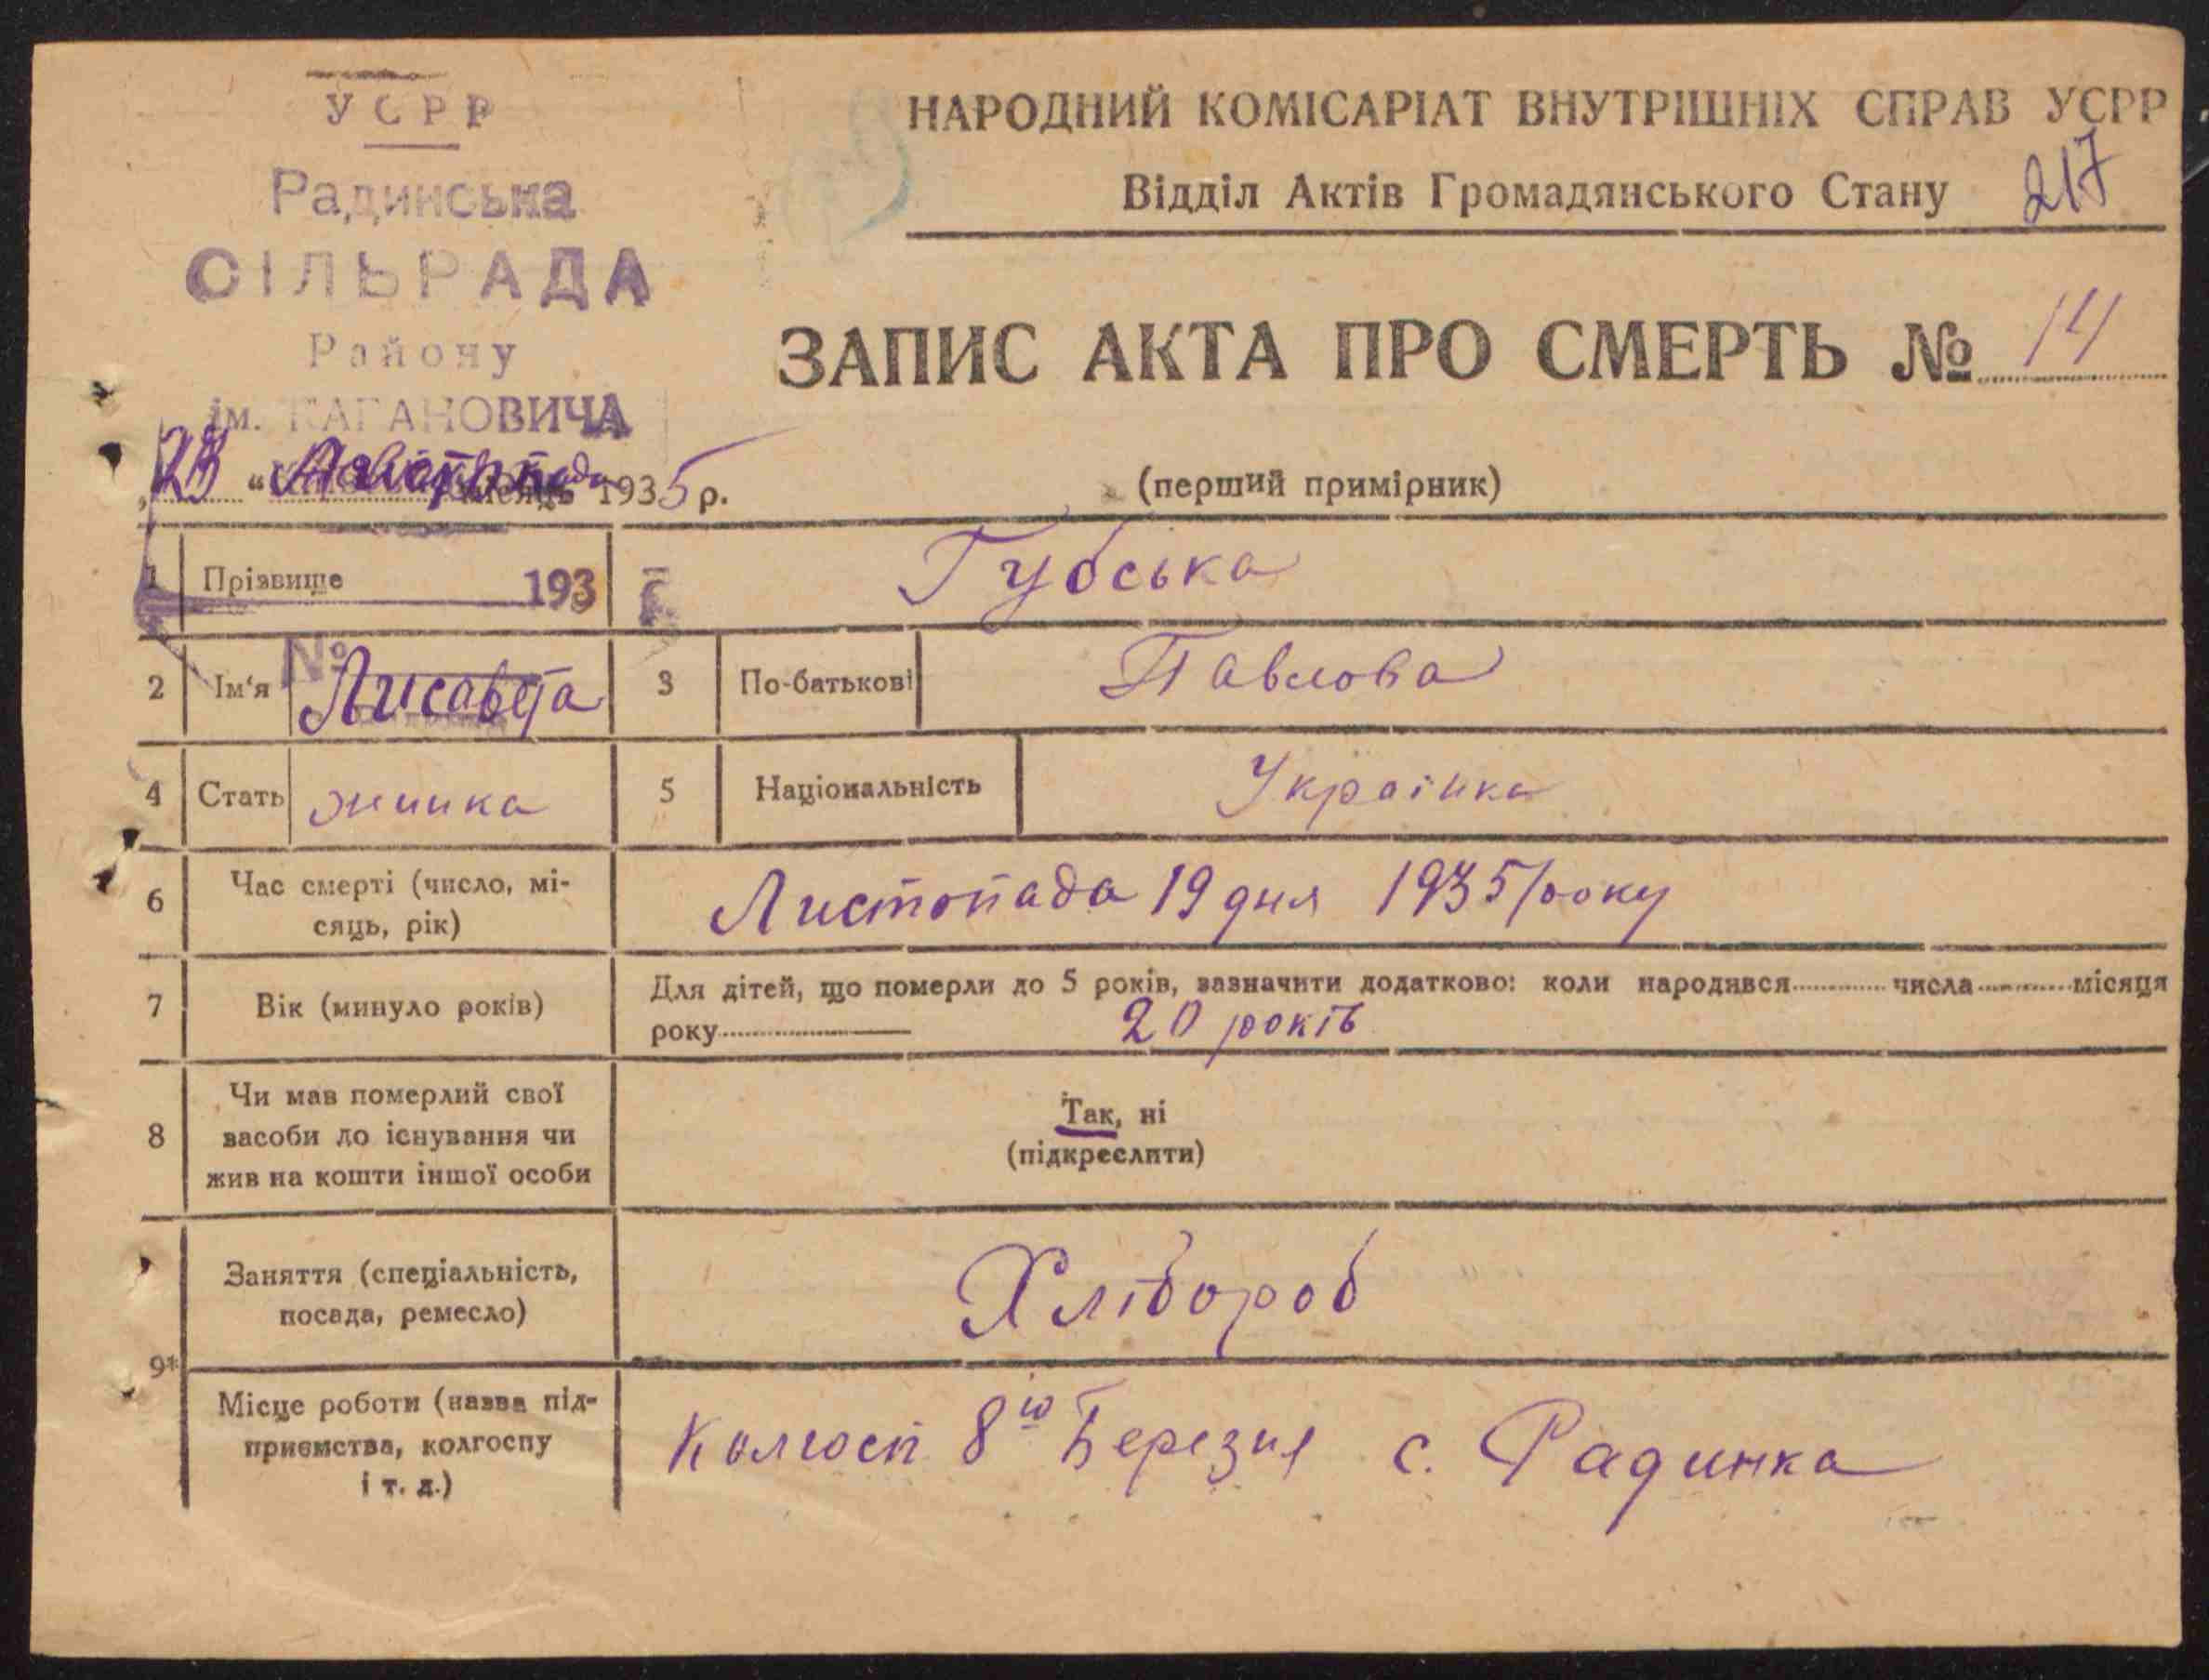 УСРР
Радинська
СІЛЬРАДА
Району
ім. КАГАНОВИЧА
НАРОДНИЙ КОМІСАРІАТ ВНУТРІШНІХ СПРАВ УСРР
Відділ Актів Громадянського Стану 217
ЗАПИС АКТА ПРО СМЕРТЬ № 14
„23 “ Листопада місяць 1935 р.
(перший примірник)
1 Прізвище 193 Губська
2 Ім‘я № Лисавета 3 По-батькові Павлова
4 Стать жинка 5 Національність Українка
6 Час смерті (число, мі-
сяць, рік) Листопада 19 дня 1935 року
7 Вік (минуло років) Для дітей, що померли до 5 років, зазначити додатково: коли народився числа місяця
року 20 років
8 Чи мав померлий свої
засоби до існування чи
жив на кошти іншої особи
Так, ні
(підкреслити)
9* Заняття (спеціальність,
посада, ремесло) Хлібороб
Місце роботи (назва під-
приємства, колгоспу
і т. д.)
Колгосп 8го Березня с. Радинка